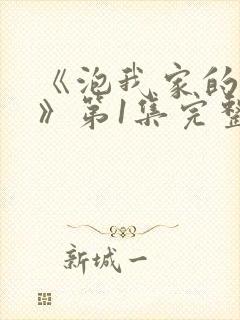 《泡我家的
》第1集完整
新城一